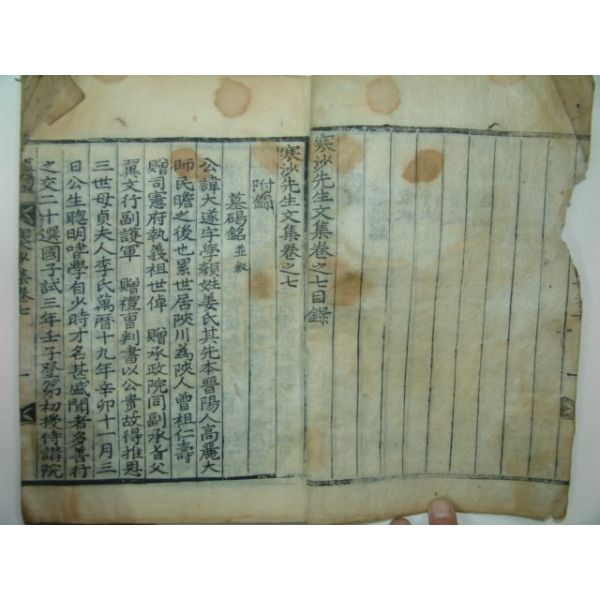 寒沙先生文集卷之七目錄
寒沙先生文集卷之七
附錄
墓碣銘並敘
公諱大遂字學顔姓姜氏其先本晉陽人高麗大
師民瞻之後也累世居陜川為陜人曾祖仁壽
贈司憲府執義祖世倬 贈承政院同副承旨父
翼文行副護軍 贈禮曺判書以公貴故得推恩
三世母貞夫人李氏萬曆十九年辛卯十一月三
日公生聰明嗜學自少時才名甚盛聞者多善行
之交二十選國子試三年壬子登第初授侍講院
寒沙集卷七
一